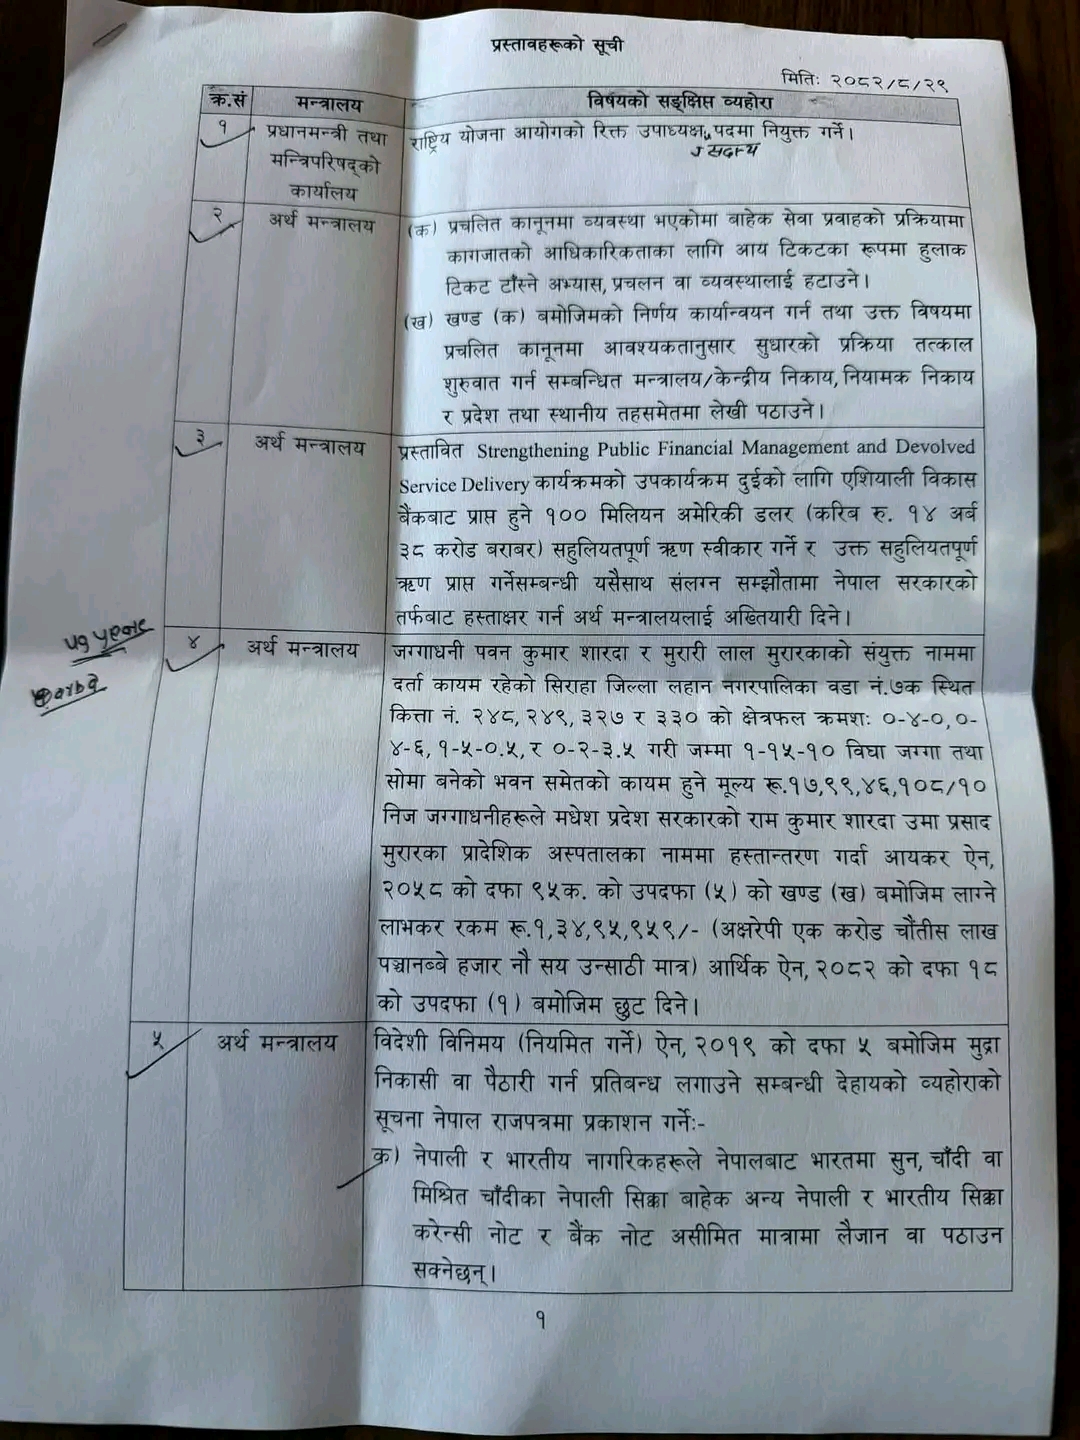 प्रस्तावहरूको सूची
मितिः २०८२/८/२९
क्र.सं मन्त्रालय विषयको सङ्क्षिप्त व्यहोरा
१ प्रधानमन्त्री तथा मन्त्रिपरिषद्को कार्यालय
राष्ट्रिय योजना आयोगको रिक्त उपाध्यक्ष पदमा नियुक्त गर्ने।
र सदस्य
२ अर्थ मन्त्रालय
(क) प्रचलित कानूनमा व्यवस्था भएकोमा बाहेक सेवा प्रवाहको प्रक्रियामा
कागजातको आधिकारिकताका लागि आय टिकटका रूपमा हुलाक
टिकट टाँस्ने अभ्यास, प्रचलन वा व्यवस्थालाई हटाउने।
(ख) खण्ड (क) बमोजिमको निर्णय कार्यान्वयन गर्न तथा उक्त विषयमा
प्रचलित कानूनमा आवश्यकतानुसार सुधारको प्रक्रिया तत्काल
शुरुवात गर्न सम्बन्धित मन्त्रालय/केन्द्रीय निकाय, नियामक निकाय
र प्रदेश तथा स्थानीय तहसमेतमा लेखी पठाउने।
३ अर्थ मन्त्रालय
प्रस्तावित Strengthening Public Financial Management and Devolved
Service Delivery कार्यक्रमको उपकार्यक्रम दुईको लागि एशियाली विकास
बैंकबाट प्राप्त हुने १०० मिलियन अमेरिकी डलर (करिब रु. १४ अर्ब
३८ करोड बराबर) सहुलियतपूर्ण ऋण स्वीकार गर्ने र उक्त सहुलियतपूर्ण
ऋण प्राप्त गर्नेसम्बन्धी यसैसाथ संलग्न सम्झौतामा नेपाल सरकारको
तर्फबाट हस्ताक्षर गर्न अर्थ मन्त्रालयलाई अख्तियारी दिने।
४ अर्थ मन्त्रालय
जग्गाधनी पवन कुमार शारदा र मुरारी लाल मुरारकाको संयुक्त नाममा
दर्ता कायम रहेको सिराहा जिल्ला लहान नगरपालिका वडा नं.७क स्थित
कित्ता नं. २४८, २४९, ३२७ र ३३० को क्षेत्रफल क्रमशः ०-४-०, ०-
४-६, १-५-०.५, र ०-२-३.५ गरी जम्मा १-१५-१० विघा जग्गा तथा
सोमा बनेको भवन समेतको कायम हुने मूल्य रू.१७,९९,४६,१०८/१०
निज जग्गाधनीहरूले मधेश प्रदेश सरकारको राम कुमार शारदा उमा प्रसाद
मुरारका प्रादेशिक अस्पतालका नाममा हस्तान्तरण गर्दा आयकर ऐन,
२०५८ को दफा ९५क. को उपदफा (५) को खण्ड (ख) बमोजिम लाग्ने
लाभकर रकम रू.१,३४,९५,९५९/- (अक्षरेपी एक करोड चौंतीस लाख
पञ्चानब्बे हजार नौ सय उन्साठी मात्र) आर्थिक ऐन, २०८२ को दफा १८
को उपदफा (१) बमोजिम छुट दिने।
५ अर्थ मन्त्रालय
विदेशी विनिमय (नियमित गर्ने) ऐन, २०१९ को दफा ५ बमोजिम मुद्रा
निकासी वा पैठारी गर्न प्रतिबन्ध लगाउने सम्बन्धी देहायको व्यहोराको
सूचना नेपाल राजपत्रमा प्रकाशन गर्नेः-
क) नेपाली र भारतीय नागरिकहरूले नेपालबाट भारतमा सुन, चाँदी वा
मिश्रित चाँदीका नेपाली सिक्का बाहेक अन्य नेपाली र भारतीय सिक्का
करेन्सी नोट र बैंक नोट असीमित मात्रामा लैजान वा पठाउन
सक्नेछन्।
१